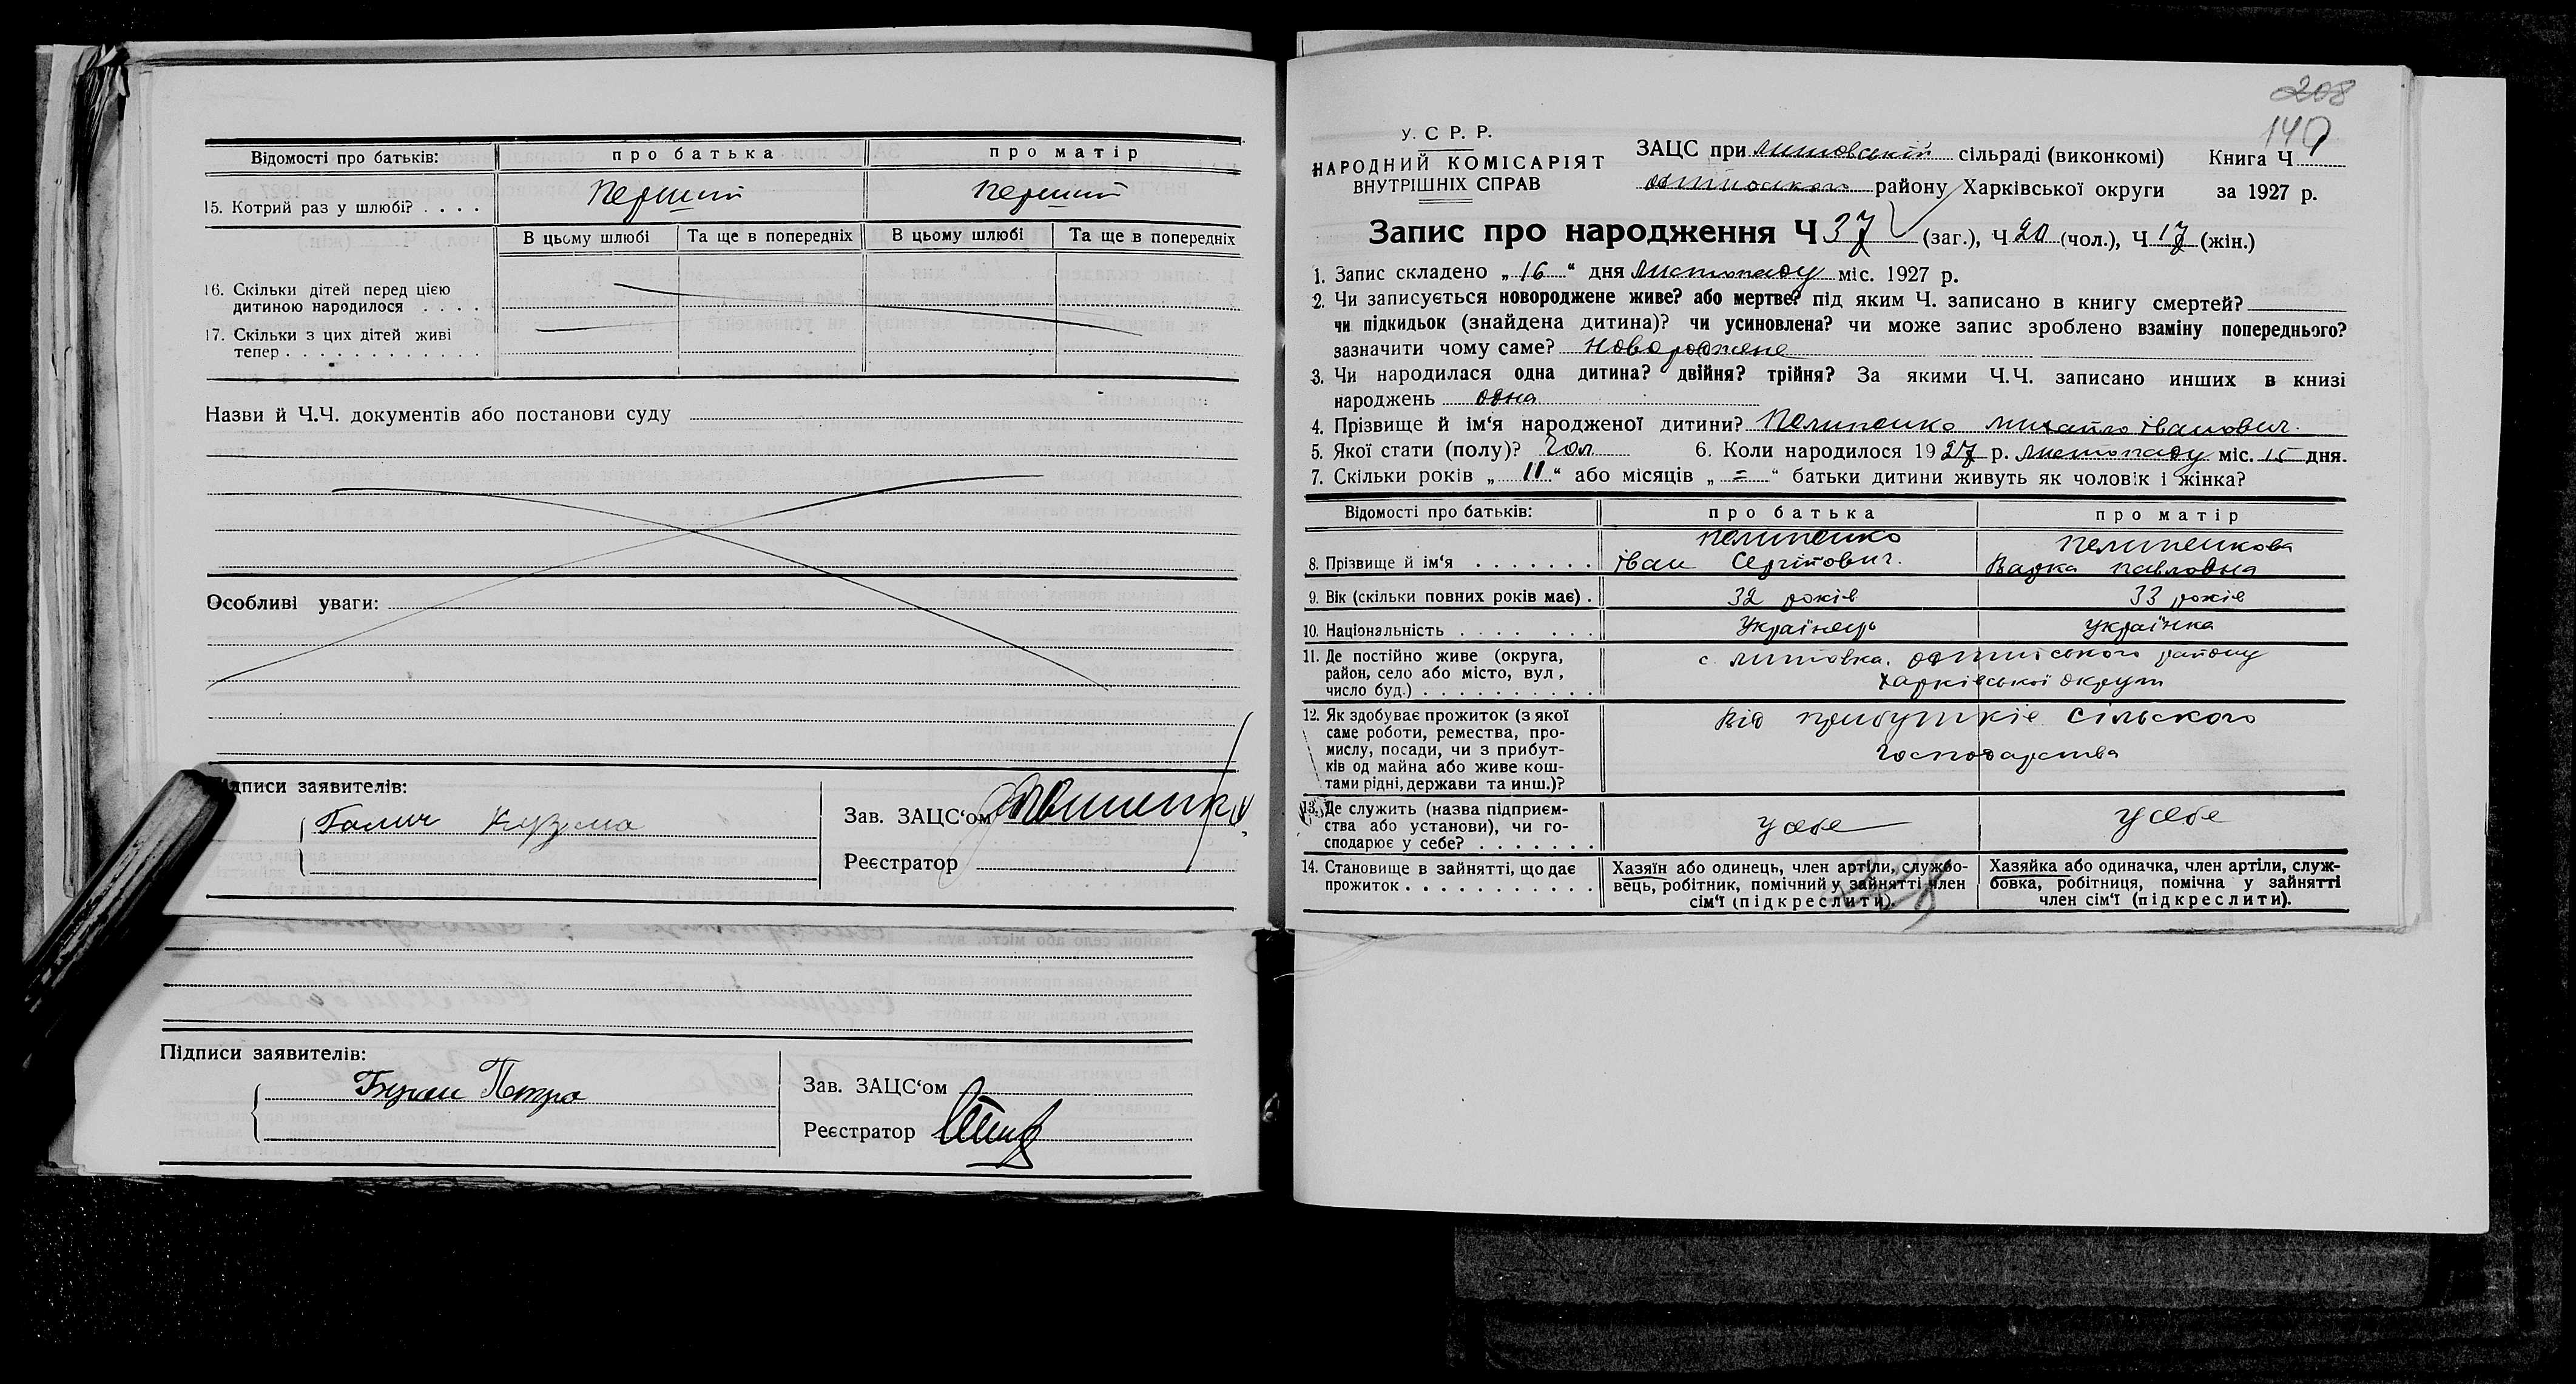 Відомості про батьків: про батька про матір
15. Котрий раз у шлюбі? . . . . Перший Перший
В цьому шлюбі Та ще в попередніх В цьому шлюбі Та ще в попередніх
16. Скільки дітей перед цією
дитиною народилося . . . .
17. Скільки з цих дітей живі
тепер . . . . . . . . . . . .
Назви й Ч.Ч. документів або постанови суду
Особливі уваги:
дписи заявителів:
Галич Кузьма
Зав. ЗАЦС‘ом
Реєстратор
Підписи заявителів:
Петро
Зав. ЗАЦС‘ом
Реєстратор
208
140
У. С Р. Р.
НАРОДНИЙ КОМІСАРІЯТ
ВНУТРІШНІХ СПРАВ
ЗАЦС при сільраді (виконкомі) Книга Ч 1
району Харківської округи за 1927 р.
Запис про народження Ч 37 (заг.), Ч 20 (чол.), Ч 17 (жін.)
1. Запис складено „ 16 “ дня листопаду міс. 1927 р.
2. Чи записується новороджене живе? або мертве? під яким Ч. записано в книгу смертей?
чи підкидьок (знайдена дитина)? чи усиновлена? чи може запис зроблено взаміну попереднього?
зазначити чому саме? новороджене
3. Чи народилася одна дитина? двійня? трійня? За якими Ч.Ч. записано инших в книзі
народжень одна
4. Прізвище й ім‘я народженої дитини? Пелипенко Михайло Іванович.
5. Якої стати (полу)? Чол 6. Коли народилося 1927 р. листопаду міс. 15 дня.
7. Скільки років „ 11 “ або місяців „ = “ батьки дитини живуть як чоловік і жінка?
Відомості про батьків: про батька про матір
Пелипенко Пелипенкова
8. Прізвище й ім‘я . . . . . . . Іван Сергійович. Варка Павловна
9. Вік (скільки повних років має) . 32 років 33 років
10. Національність . . . . . . . Українець Українка
11. Де постійно живе (округа,
район, село або місто, вул,
число буд.) . . . . . . . . . .
с. Литовка. району
Харківської округи
12. Як здобуває прожиток (з якої
саме роботи, ремества, про-
мислу, посади, чи з прибут-
ків од майна або живе кош-
тами рідні, держави та инш.)?
Від прибутків сільского
господарства
13. Де служить (назва підприєм-
ства або установи), чи го-
сподарює у себе? . . . . . . .
у себе у себе
14. Становище в зайнятті, що дає
прожиток . . . . . . . . . . .
Хазяїн або одинець, член артіли, службо-
вець, робітник, помічний у зайнятті член
сім‘ї (підкреслити).
Хазяйка або одиначка, член артіли, служ-
бовка, робітниця, помічна у зайнятті
член сім‘ї (підкреслити).